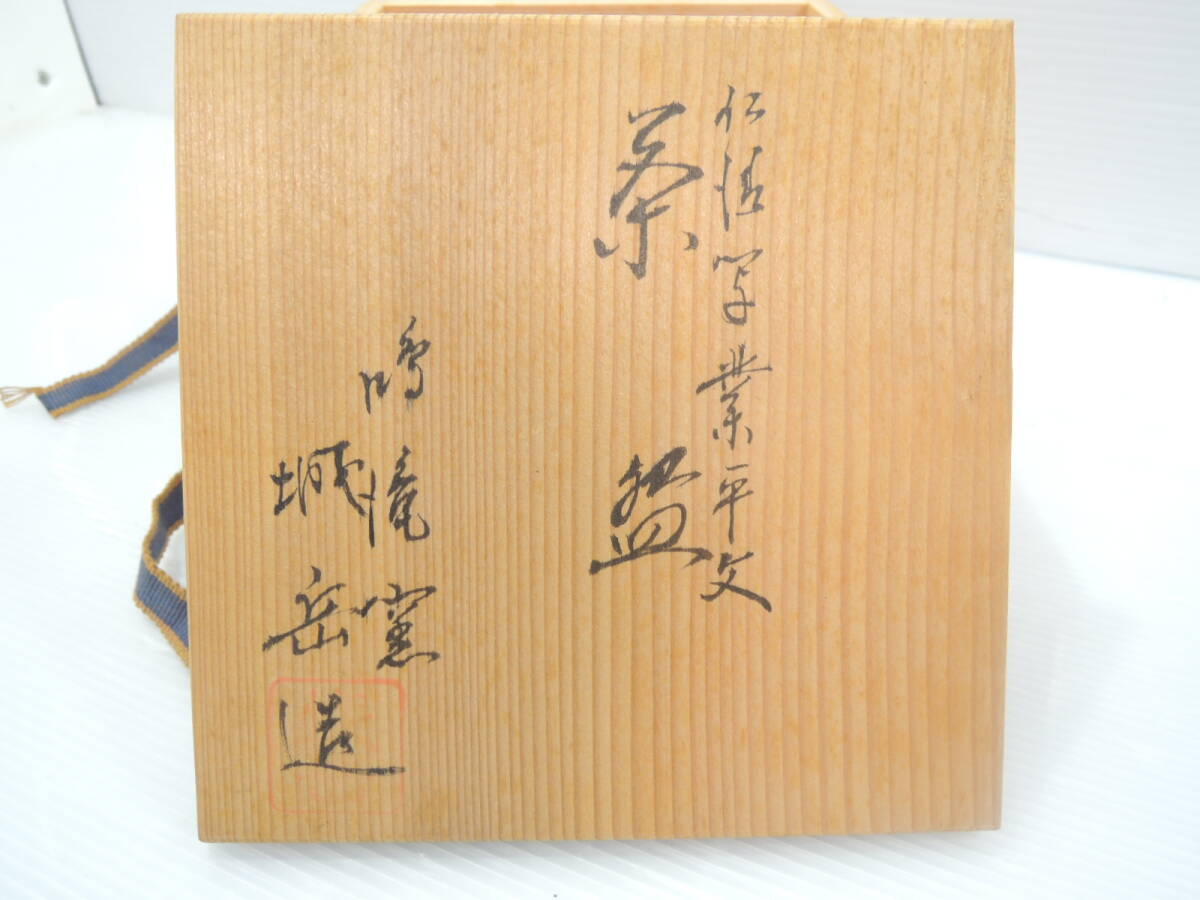 仁清写業平文
茶盌
鳴滝窯
城岳造